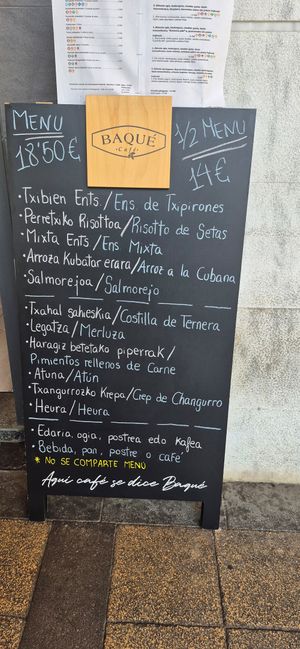 MENU
18'50€
BAQUÉ
Café
1/2 MENU
14€
• Txibien Ents. / Ens de Txipirones
• Perretxiko Risottoa / Risotto de Setas
• Mixta Ents / Ens Mixta
• Arroza Kubatar erara / Arroz a la Cubana
• Salmorejoa / Salmorejo
• Txahal sahieskia / Costilla de Ternera
• Legatza / Merluza
• Haragiz betetako piperrak /
Pimientos rellenos de Carne
• Atuna / Atún
• Txangurrozko Krepa / Crep de Changurro
• Heura / Heura
• Edaria, ogia, postrea edo kafea
• Bebida, pan, postre o café
* NO SE COMPARTE MENÚ
Aquí café se dice Baqué